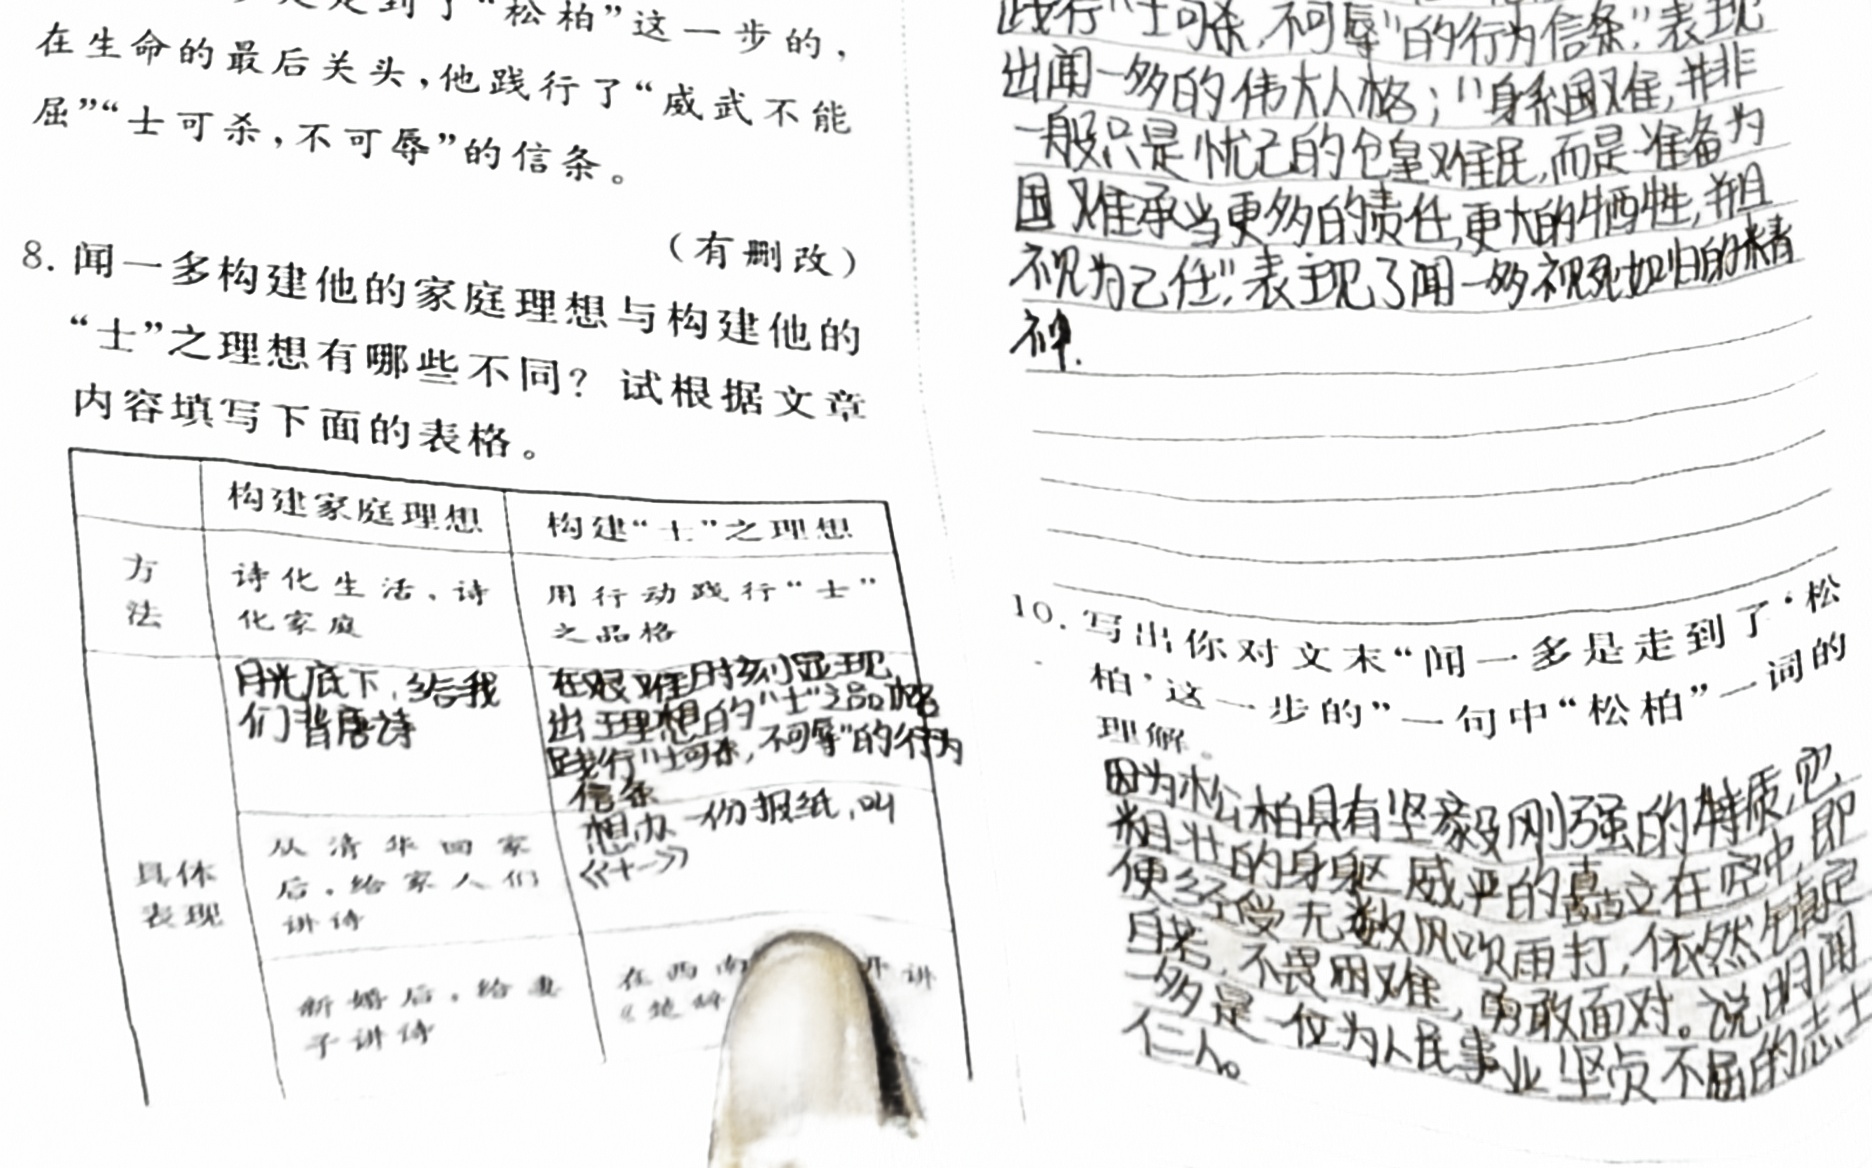 走到了“松柏”这一步的，
在生命的最后关头，他践行了“威武不能
屈”“士可杀，不可辱”的信条。
（有删改）
8. 闻一多构建他的家庭理想与构建他的
“士”之理想有哪些不同？试根据文章
内容填写下面的表格。
构建家庭理想
构建“士”之理想
方法
诗化生活、诗
化家庭
用行动践行“士”
之品格
具体
表现
月光底下，给我
们背唐诗
在艰难时刻显现
出理想的“士”之品格
践行“士可杀，不可辱”的行为
信条
从清华回家
后，给家人们
讲诗
想办一份报纸，叫
《十一》
新婚后，给妻
子讲诗
在西南 开讲
《楚辞
践行“士可杀，不可辱”的行为信条”，表现
出闻一多的伟大人格；“身系国难，并非
一般只是忧己的仓皇难民，而是准备为
国难承当更多的责任，更大的牺牲，并且
视为己任”，表现了闻一多视死如归的精
神.
10. 写出你对文末“闻一多是走到了‘松
柏’这一步的”一句中“松柏”一词的
理解。
因为松柏具有坚毅刚强的特质，它
粗壮的身躯威严的矗立在空中，即
便经受无数风吹雨打，依然镇定
自若，不畏困难，勇敢面对。说明闻
一多是一位为人民事业坚贞不屈的志士
仁人。